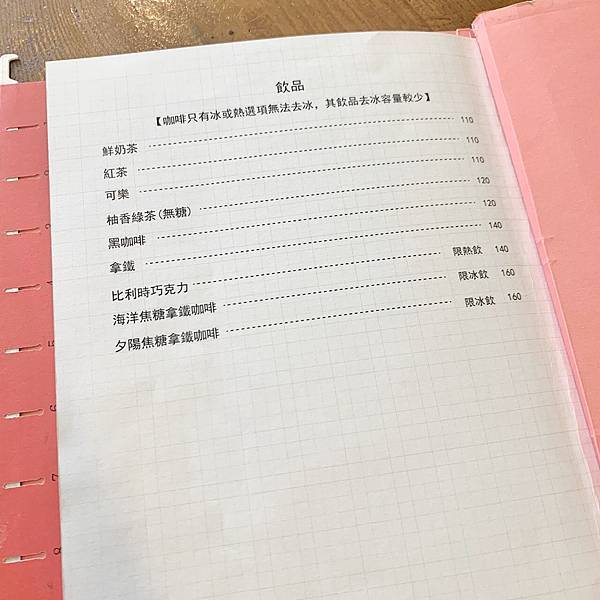 飲品
【咖啡只有冰或熱選項無法去冰，其飲品去冰容量較少】
鮮奶茶 110
紅茶 110
可樂 110
柚香綠茶(無糖) 120
黑咖啡 120
拿鐵 140
比利時巧克力 限熱飲 140
海洋焦糖拿鐵咖啡 限冰飲 160
夕陽焦糖拿鐵咖啡 限冰飲 160
5
6
7
8